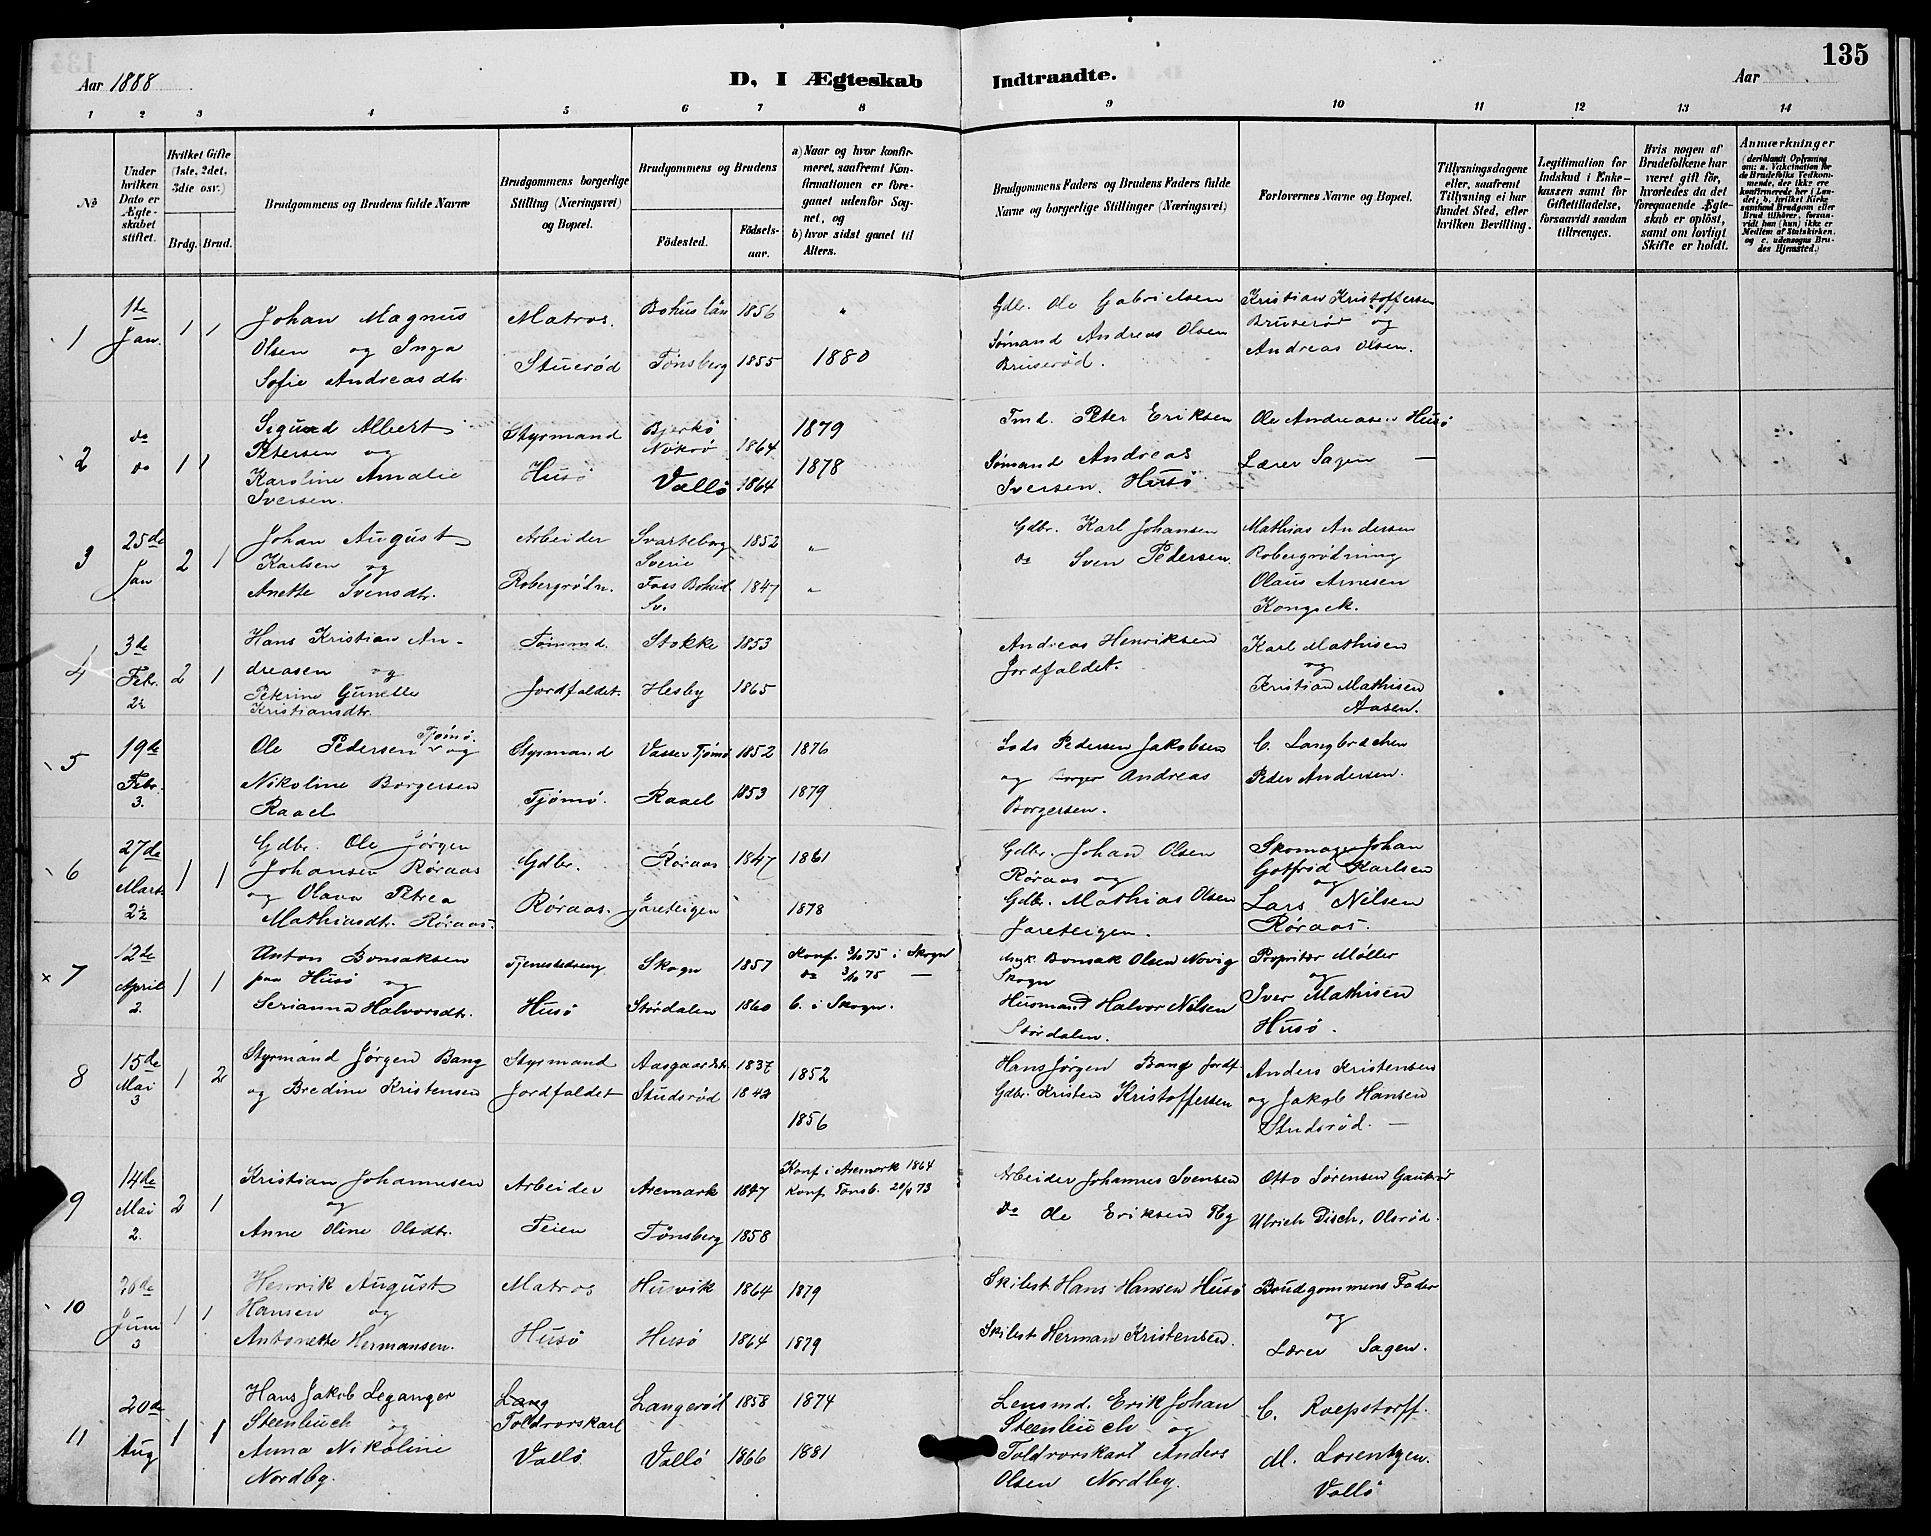 135
Aar 1888
D, I Ægteskab Indtraadte.
Aar
1 2 3 4 5 6 7 8 9 10 11 12 13 14
No
Under hvilken Dato er Ægteskabet stiftet.
Hvilket Gifte (1ste, 2det, 3die osv.)
Brdg. Brud.
Brudgommens og Brudens fulde Navne
Brudgommens borgerlige Stilling (Næringsvei) og Bopæl.
Brudgommens og Brudens
Fødested. Fødselsaar.
a) Naar og hvor konfirmeret, saafremt Konfirmationen er foregaaet udenfor Sognet, og
b) hvor sidst gaaet til Alters.
Brudgommens Faders og Brudens Faders fulde Navne og borgerlige Stillinger (Næringsvei)
Forlovernes Navne og Bopæl.
Tillysningsdagene eller, saafremt Tillysning ei har fundet Sted, efter hvilken Bevilling.
Legitimation for Indskud i Enkekassen samt for Giftetilladelse, forsaavidt saadan tiltrænges.
Hvis nogen af Brudefolkene har været gift før, hvorledes da det foregaaende Ægteskab er opløst, samt om lovligt Skifte er holdt.
Anmærkninger
(deriblandt Oplysning om: a. Vaccination for de Brudefolks Vedkommende, der ikke ere konfirmerede her i Landet; b. hvilket Kirkesamfund Brudgom eller Brud tilhører, forsaavidt han (hun) ikke er Medlem af Statskirken. og c. udensogns Brudes Hjemsted.)
1 1ste Jan. 1 1
Johan Magnus
Olsen og Inga
Sofie Andreasdtr.
Matros.
Stuerød
Bohuslän 1856 "
Tønsberg 1855 1880
Gdbr. Ole Gabrielsen
Sømand Andreas Olsen
Bruserød.
Kristian Kristoffersen
Bruserød og
Andreas Olsen.
2 do do 1 1
Sigurd Albert
Petersen og
Karoline Amalie
Iversen.
Styrmand
Husø
Bjerkø
Nøtterø 1864 1879
Vallø 1864 1878
Tmd. Peter Eriksen
Sømand Andreas
Iversen. Husø
Ole Andreasen Husø
Lærer Sagen —
3 25de Jan 2 1
Johan August
Karlsen og
Anette Svensdtr.
Arbeider
Robergrødn.
Svarteborg 1852 "
Sverie
Foss Bohusl. 1847 "
Sv.
Gdbr. Karl Johansen
do Sven Pedersen.
Mathias Andersen
Robergrødning
Olaus Arnesen
Kongsek.
4 3de Febr. 2½ 2 1
Hans Kristian An-
dreasen og
Peterine Gunelle
Kristiansdtr.
Tømmd.
Jordfaldet.
Stokke 1853
Hesby 1865
Andreas Henriksen
Jordfaldet.
Karl Mathisen
og
Kristian Mathisen
Aasen.
5 19de Febr. 3.
Ole Pedersen Tjømø. og
Nikoline Borgersen
Raael
Styrmand
Tjømø.
Vasser Tjømø 1852 1876
Raael 1853 1879
Lods Pedersen Jakobsen
og Andreas
Borgersen.
C. Langbrechen
Peder Andersen.
6 27de Marts 2½ 1 1
Gdbr. Ole Jørgen
Johansen Røraas
og Olava Petrea
Mathiasdtr. Røraas.
Gdbr.
Røraas.
Røraas 1847 1861
Jareteigen 1878
Gdbr. Johan Olsen
Røraas og
Gdbr. Mathias Olsen
Jareteigen.
Skomager Johan
Gotfred Karlsen
og
Lars Nilsen
Røraas.
7 12de April 2. 1 1
Anton Bonsaksen
paa Husø og
Serianna Halvorsdtr.
Tjenestedreng
Husø
Skogn 1857
Størdalen 1860
Konf. 3/10 75 i Skogn
do 3/10 75 —
b. i Skogn.
Bonsak Olsen Novig
Skogn
Husmand Halvor Nilsen
Størdalen.
Propritær Møller
og
Iver Mathisen
Husø.
8 15de Mai 3 1 2
Styrmand Jørgen Bang
og Bredine Kristensen
Styrmand
Jordfaldet
Aasgaardst. 1837 1852
Studsrød 1842
1856
Hans Jørgen Bang Jordf.
Gdbr. Kristen Kristoffersen
Anders Kristensen
og Jakob Hansen
Studsrød. —
9 14de Mai 2. 2 1
Kristian Johannesen
og
Anne Oline Olsdtr.
Arbeider
Teien
Aremark 1847
Tønsberg 1858
Konf. i Aremark 1864
Konf. Tønsb. 20/4 73
Arbeider Johannes Svensen
do Ole Eriksen Tbg
Otto Sørensen Gauterød
Ulrich Disch, Olsrød.
10 26de Juni 3 1 1
Henrik August
Hansen og
Antonette Hermansen.
Matros
Husø
Husvik 1864 1879
Husø 1864 1879
Skibst. Hans Hansen Husø
Skibst. Herman Kristensen.
Brudgommens Fader
og
Lærer Sagen.
11 20de Aug 1 1
Hans Jakob Leganger
Steenbuch og
Anna Nikoline
Nordby.
Lang
Toldrorskarl
Vallø
Langerød 1858 1874
Vallø 1866 1881
Lensmd. Erik Johan
Steenbuch og
Toldrorskarl Anders
Olsen Nordby.
C. Roepstorff.
M. Lorentzen.
Vallø